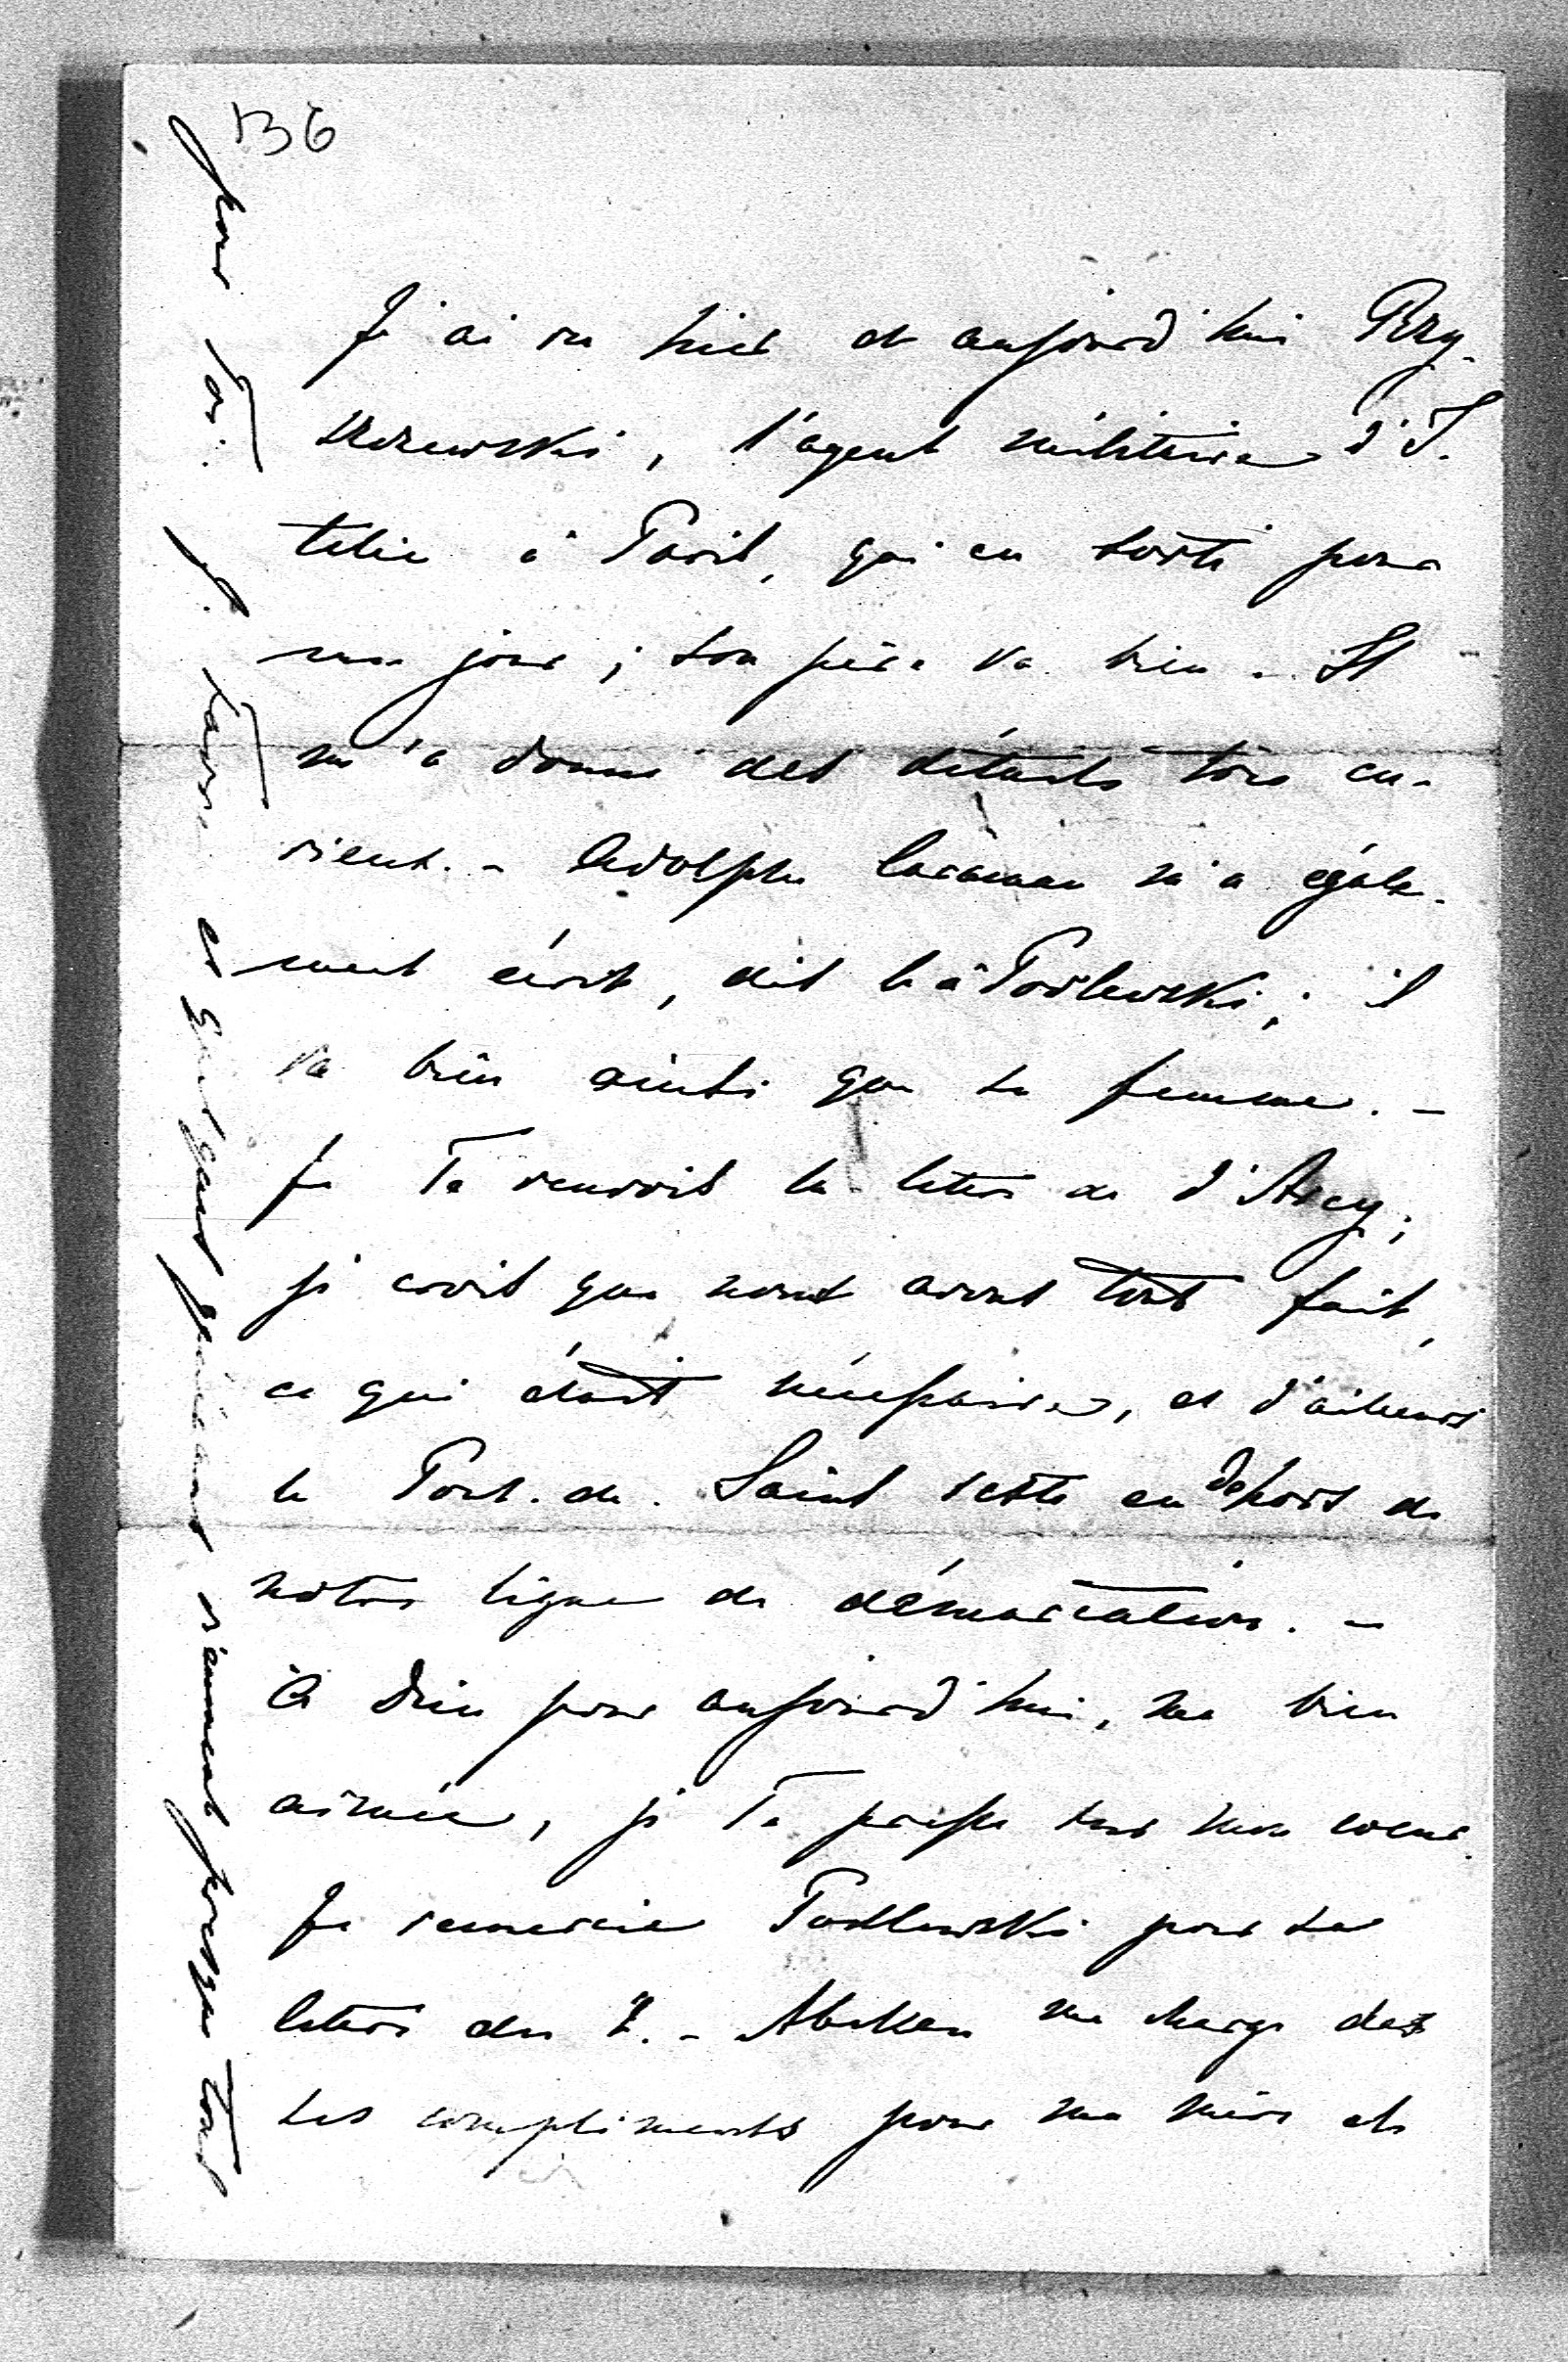 136
J'ai vu hier et aujourd'hui
l'agent militaire d'I-
talie à Paris, qui en sorti pour
un jour; son père va bien. Il
m'a donné des détails très cu-
rieux. - Adolphe m'a égale-
ment écrit, dis le à Podlewski; il
va bien ainsi que sa femme. -
Je Te renvois la lettre de d'Arcy;
je crois que nous avons tout fait,
ce qui était nécessaire, et d'ailleurs
le Pont. de. Saint reste en dehors de
notre ligne de démarcation. -
à Dieu pour aujourd'hui, ma bien
aimée, je Te presse sur mon coeur.
Je remercie Podlewski pour sa
lettre du 2. - Abeken me charge des
ses compliments pour ma mère et
pour Toi. J. et quelques généraux viennent presque tous